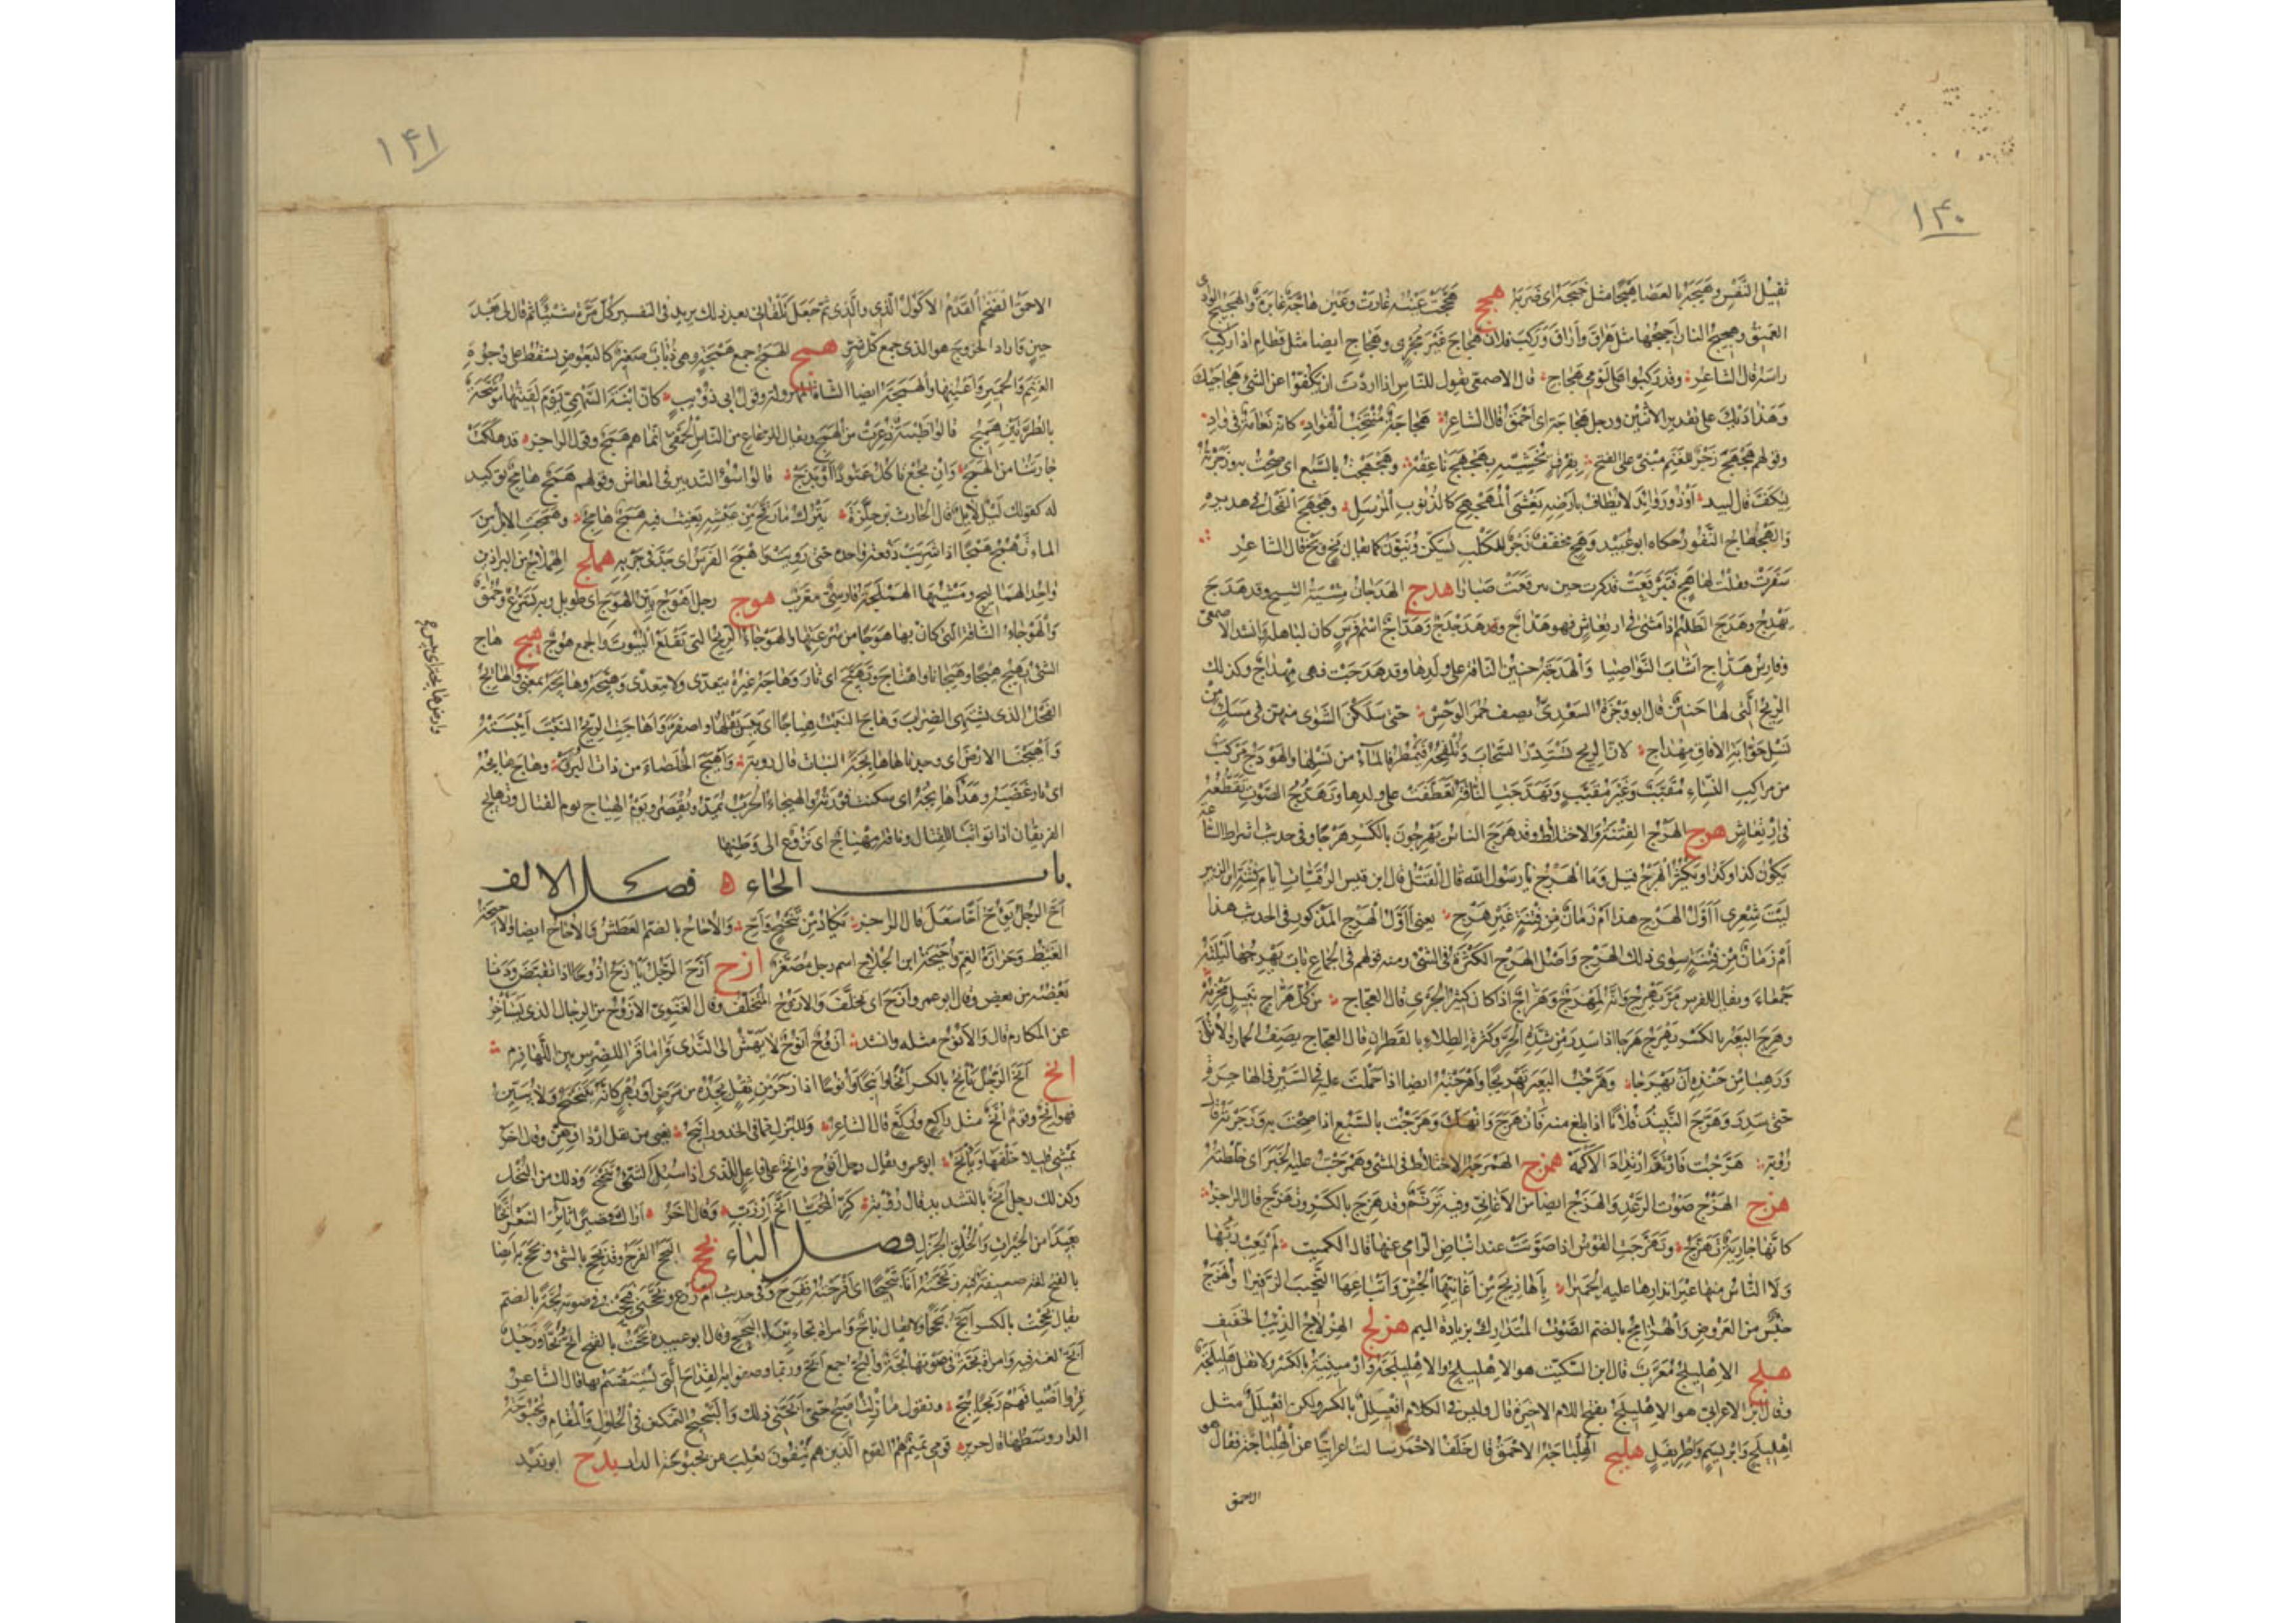 ١٤٠
ثقيل النفس وهبجه بالعصا هبجا مثل حبجه اى ضربه هجج هججت عينه غارت وعين هاجة غائرة والهجيج الوادى
العميق وهجيج النار اجيجها مثل هراق واراق وركب فلان هجاج غير مجرى وهجاج ايضا مثل قطام اذا ركب
راسه قال الشاعر وقد ركبوا على لومى هجاج قال الاصمعى يقول للناس اذا اردت ان يكفوا عن الشئ هجاجيك
وهذاذيك على تقدير الاثنين ورجل هجاجة اى احمق قال الشاعر هجاجة منتخب الفؤاد كانه نعامة فى واد
وقولهم هجهج زجر للغنم مبنى على الفتح وهجهجت بالسبع اى صحت به وزجرته
ليكف قال لبيد او ذو زوائد لا يطاف بارضه يغشى المهجهج كالذنوب المرسل وهجهج الفحل فى هديره
النفور حكاه ابو عبيد وهج مخفف زجر للكلب يسكن وينون كما يقال بخ وبخ قال الشاعر
سفرت فقلت لها هج فتبرقعت فذكرت حين تبرقعت ضبارا هدج الهدجان مشية الشيخ وقد هدج
يهدج وهدج الظليم اذا مشى فى ارتعاش فهو هداج وهدجدج وهداج اسم فرس كان لباهلة وانشد الاصمعى
وفارس هداج اشاب النواصيا والهدجة حنين الناقة على ولدها وقد هدجت فهى مهداج وكذلك
الريح التى لها حنين قال ابو وجزة السعدى يصف حمر الوحش حتى سلكن الشوى منهن فى مسك من
نسل جوابة الافاق مهداج لان الريح تستدر السحاب وتلقحه فيمطر فالماء من نسلها والهودج مركب
من مراكب النساء مقبب وغير مقبب وتهدجت الناقة تعطفت على ولدها وتهدج الصوت تقطعه
فى ارتعاش هرج الهرج الفتنة والاختلاط وقد هرج الناس يهرجون بالكسر هرجا وفى حديث اشراط الساعة
يكون كذا وكذا ويكثر الهرج قيل وما الهرج يا رسول الله قال القتل قال ابن قيس الرقيات ايام فتنة ابن الزبير
ليت شعرى أاول الهرج هذا ام زمان من فتنة غير هرج يعنى أاول الهرج المذكور فى الحديث هذا
ام زمان من فتنة سوى ذلك الهرج واصل الهرج الكثرة فى الشئ ومنه قولهم فى الجماع بات يهرجها ليلته
جمعاء ويقال للفرس مر يهرج وانه لمهرج وهراج اذا كان كثير الجرى قال العجاج من كل هراج نبيل محزمه
وهرج البعير بالكسر يهرج هرجا اذا سدر من شدة الحر وكثرة الطلاء بالقطران قال العجاج يصف الحمار والاتن
ورهبا من حنذه ان يهرجا وهرجت البعير تهريجا واهرجته ايضا اذا حملت عليه فى السير فى الهاجرة
حتى سدر وهرج النبيذ فلانا اذا بلغ منه فانهرج وانهك وهرجت بالسبع اذا صحت به وزجرته قال
رؤبة هرجت فارتد ارتداد الاكمه همرج الهمرجة الاختلاط فى المشى وهمرجت عليه الخبر اى خلطته
هزج الهزج صوت الرعد والهزج ايضا من الاغانى وفيه ترنم وقد هزج بالكسر وتهزج قال الراجز
كانها جارية تهزج وتهزجت القوس اذا صوتت عند انباض الرامى عنها قال الكميت لم يعب ربها
ولا الناس منها غير انذارها عليه الحميرا باهازيج من اغانيها الجش واتباعها النحيب الزفيرا والهزج
جنس من العروض والهزامج بالضم الصوت المتدارك بزيادة الميم هزلج الهزلاج الذئب الخفيف
هلج الاهليلج معرب قال ابن السكيت هو الاهليلج والاهليلجة وارمينية بالكسر ولا تقل هليلجة
وقال ابن الاعرابى هو الاهليلج بفتح اللام الاخيرة قال وليس فى الكلام افعيلل بالكسر ولكن افعيلل مثل
اهليلج وابريسم واطريفل هلبج الهلباجة الاحمق قال خلف الاحمر سالت اعرابيا عن الهلباجة فقال هو
الاحمق
١٤١
الاحمق الضخم الفدم الاكول الذى والذى ثم جعل يلقانى بعد ذلك يزيد فى التفسير كل مرة شيئا ثم قال لى بعد
حين واراد الخروج هو الذى جمع كل شر همج الهمج جمع همجة وهى ذباب صغير كالبعوض يسقط على وجوه
الغنم والحمير واعينها والهمجة ايضا الشاة المهزولة وقول ابى ذؤيب كان ابنة السهمى يوم لقيتها موشحة
بالطرتين هميج قالوا ظبية ذعرت من الهمج ويقال للرعاع من الناس الحمقى انما هم همج وقول الراجز قد هلكت
جارتنا من الهمج وان تجع تاكل عتودا او بذج قالوا سوء التدبير فى المعاش وقولهم همج هامج توكيد
له كقولك ليل لايل قال الحارث بن حلزة يترك ما رقح من عيشه يعيث فيه همج هامج وهمجت الابل من
الماء تهمج همجا اذا شربت دفعة واحدة حتى رويت واهمج الفرس اى جد فى جريه هملج الهملاج من البراذين
واحد الهماليج ومشيتها الهملجة فارسى معرب هوج رجل اهوج بين الهوج اى طويل وبه تسرع وحمق
والهوجاء الناقة التى كان بها هوجا من سرعتها والهوجاء الريح التى تقلع البيوت والجمع هوج هيج هاج
الشئ يهيج هيجا وهيجانا واهتاج وتهيج اى ثار وهاجه غيره يتعدى ولا يتعدى وهيجه وهايجه بمعنى والهائج
الفحل الذى يشتهى الضراب وهاج النبت هياجا اى يبس بقلها واصفر واهاجت الريح النبت ايبسته
واهيجنا الارض اى وجدناها هايجة النبات قال رؤبة واهيج الخلصاء من ذات البرق وهاج هايجه
اى ثار غضبه وهدأ هايجه اى سكنت فورته والهيجاء الحرب تمد وتقصر ويوم الهياج يوم القتال وتهايج
الفريقان اذا تواثبا للقتال وناقة مهياج اى نزوع الى وطنها
وارض هايجة اى يبس
باب الحاء فصل الالف
اح الرجل يؤح احا سعل قال الراجز يكاد من تنحنح واح والاحاح بالضم العطش والاحاح ايضا والاحيحة
الغيظ وحزازة الغم واحيحة ابن الجلاح اسم رجل مصغر ازح ازح الرجل يازح ازوحا اذا تقبض ودنا
بعضه من بعض وقال ابو عمرو ازح اى تخلف والازوح المتخلف وقال الغنوى الازوح من الرجال الذى يستاخر
عن المكارم قال والانوح مثله وانشد ازوح انوح لا يهش الى الندى قرا ما قرا للضرس بين اللهازم
انح انح الرجل يانح بالكسر انحا وانيحا وانوحا اذا زحر من ثقل يجده من مرض او بهر كانه يتنحنح ولا يبين
فهو انح وقوم انح مثل راكع وركع قال الشاعر
يمشى قليلا خلفها ويانح ابو عمرو يقال رجل انوح وانح على فاعل للذى اذا سئل الشئ تنحنح وذلك من البخل
وكذلك رجل انح بالتشديد قال رؤبة كز المحيا انح ارزب وقال اخر اراك قصيرا ثائر الشعر انحا
بعيدا من الخيرات والخلق الجزل فصل الباء بجح البجح الفرح وقد بجح بالشئ وبجح به ايضا
بالفتح لغة ضعيفة فيه وبجحته انا تبجيحا اى افرحته ففرح وفى حديث ام زرع وبجحنى فبجحت بحح فى صوته بحة بالضم
يقال بححت بالكسر ابح بححا ولا يقال باح وامراة بحاء بينة البحح وقال ابو عبيدة بححت بالفتح ابح بحا ورجل
ابح وامراة بحة فى صوتهما بحة والبح جمع ابح وربما وصفوا به القداح التى يستقسم بها قال الشاعر
قروا اضيافهم ربحا ببح وتقول ما زلت اصيح حتى ابحنى ذلك والتبحبح التمكن فى الحلول والمقام وبحبوحة
الدار وسطها قال جرير قومى تميم هم القوم الذين هم ينفون تغلب عن بحبوحة الدار بدح ابو زيد